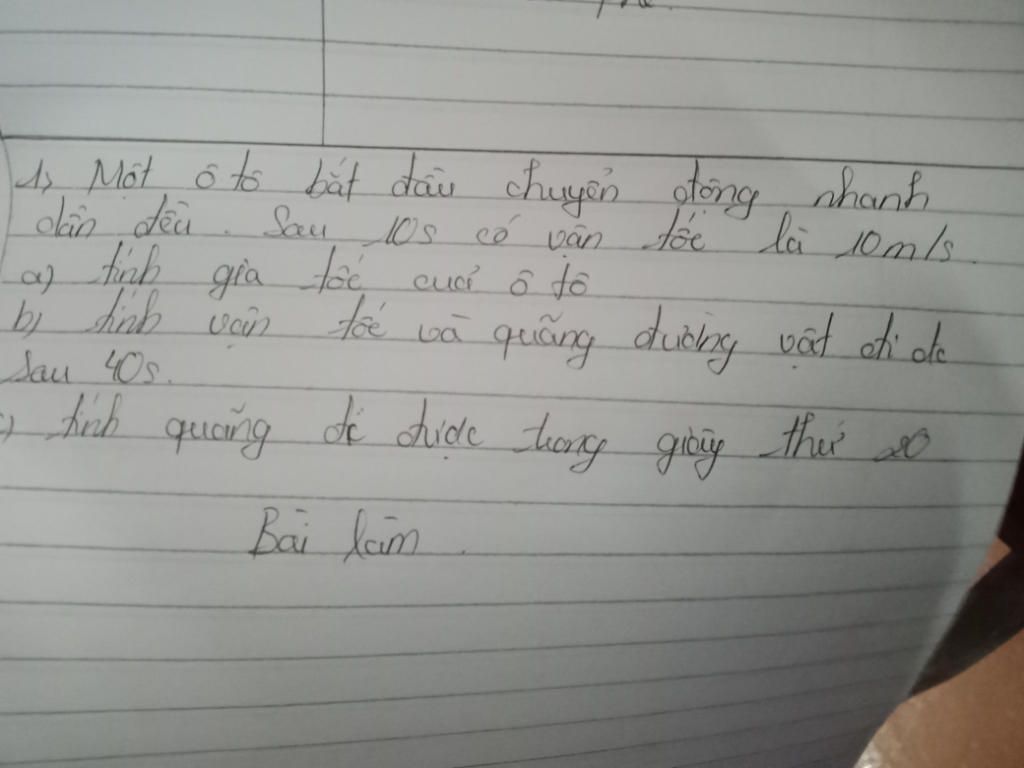 1, Một ô tô bắt đầu chuyển động nhanh
dần đều. Sau 10s có vận tốc là 10m/s.
a) tính gia tốc cuả ô tô
b) tính vận tốc và quãng đường vật đi đc
Sau 40s.
) tính quãng đi được trong giây thứ 20
Bài làm.